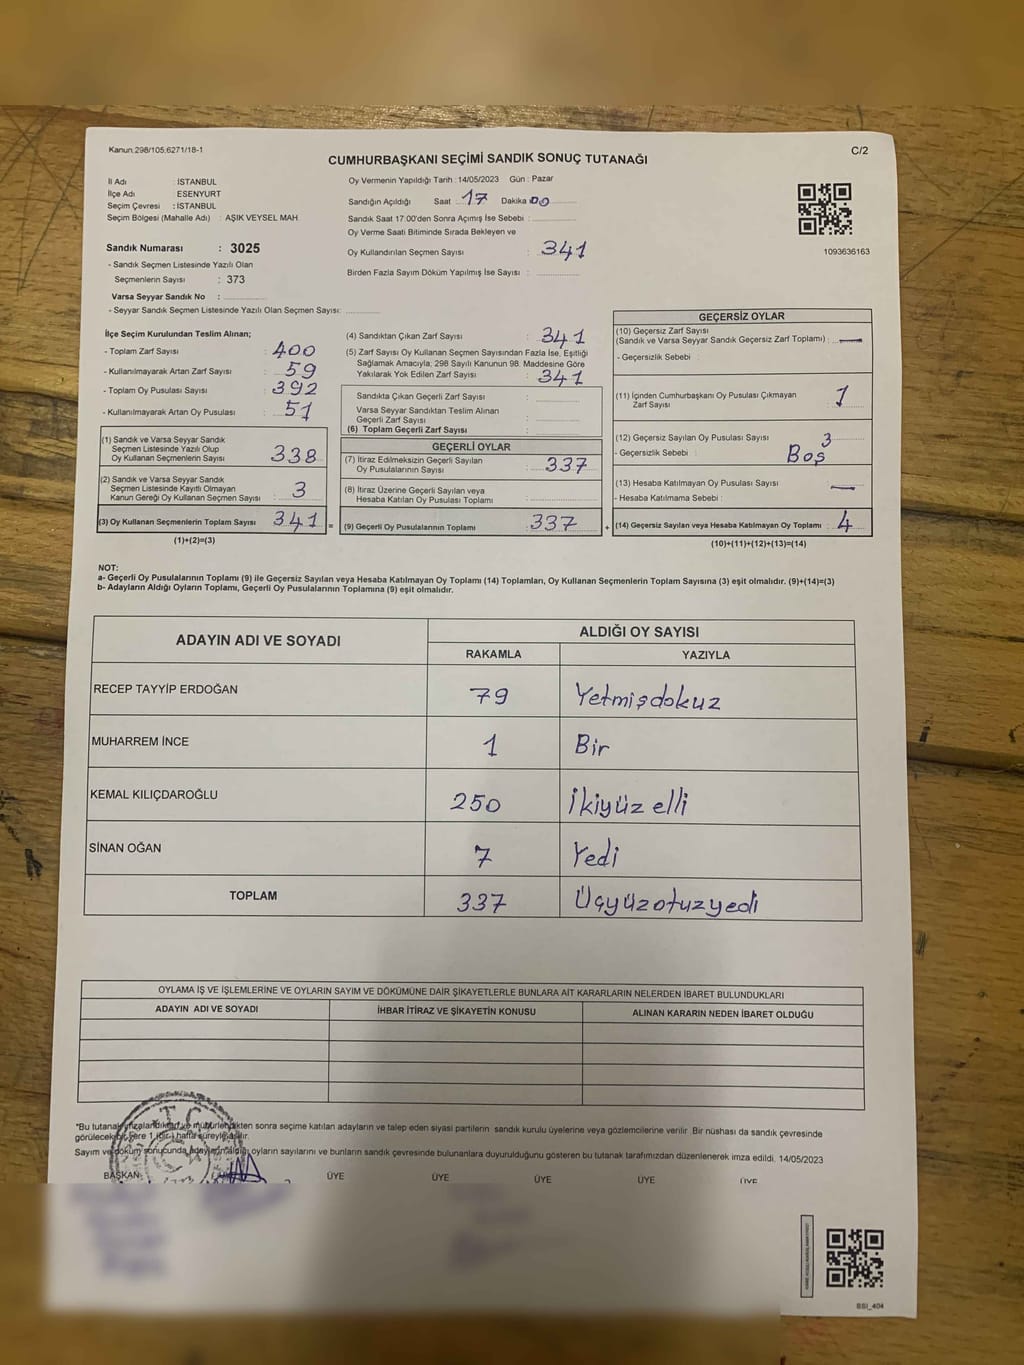 Kanun.298/105;6271/18-1
C/2
CUMHURBAŞKANI SEÇİMİ SANDIK SONUÇ TUTANAĞI
İl Adı : İSTANBUL
İlçe Adı : ESENYURT
Seçim Çevresi : İSTANBUL
Seçim Bölgesi (Mahalle Adı) : AŞIK VEYSEL MAH.
Sandık Numarası : 3025
- Sandık Seçmen Listesinde Yazılı Olan
Seçmenlerin Sayısı : 373
Varsa Seyyar Sandık No :
- Seyyar Sandık Seçmen Listesinde Yazılı Olan Seçmen Sayısı:
Oy Vermenin Yapıldığı Tarih : 14/05/2023 Gün : Pazar
Sandığın Açıldığı Saat 17 Dakika 00
Sandık Saat 17:00'den Sonra Açımış İse Sebebi :
Oy Verme Saati Bitiminde Sırada Bekleyen ve
Oy Kullandırılan Seçmen Sayısı : 341
Birden Fazla Sayım Döküm Yapılmış İse Sayısı :
1093636163
İlçe Seçim Kurulundan Teslim Alınan;
- Toplam Zarf Sayısı : 400
- Kullanılmayarak Artan Zarf Sayısı : 59
- Toplam Oy Pusulası Sayısı : 392
- Kullanılmayarak Artan Oy Pusulası : 51
(1) Sandık ve Varsa Seyyar Sandık
Seçmen Listesinde Yazılı Olup
Oy Kullanan Seçmenlerin Sayısı : 338
(2) Sandık ve Varsa Seyyar Sandık
Seçmen Listesinde Kayıtlı Olmayan
Kanun Gereği Oy Kullanan Seçmen Sayısı : 3
(3) Oy Kullanan Seçmenlerin Toplam Sayısı : 341 =
(1)+(2)=(3)
(4) Sandıktan Çıkan Zarf Sayısı : 341
(5) Zarf Sayısı Oy Kullanan Seçmen Sayısından Fazla İse, Eşitliği
Sağlamak Amacıyla; 298 Sayılı Kanunun 98. Maddesine Göre
Yakılarak Yok Edilen Zarf Sayısı : 341
Sandıkta Çıkan Geçerli Zarf Sayısı :
Varsa Seyyar Sandıktan Teslim Alınan
Geçerli Zarf Sayısı :
(6) Toplam Geçerli Zarf Sayısı :
GEÇERLİ OYLAR
(7) İtiraz Edilmeksizin Geçerli Sayılan
Oy Pusulalarının Sayısı : 337
(8) İtiraz Üzerine Geçerli Sayılan veya
Hesaba Katılan Oy Pusulası Toplamı :
(9) Geçerli Oy Pusulalarının Toplamı : 337 +
GEÇERSİZ OYLAR
(10) Geçersiz Zarf Sayısı
(Sandık ve Varsa Seyyar Sandık Geçersiz Zarf Toplamı) : —
- Geçersizlik Sebebi :
(11) İçinden Cumhurbaşkanı Oy Pusulası Çıkmayan
Zarf Sayısı : 1
(12) Geçersiz Sayılan Oy Pusulası Sayısı : 3
- Geçersizlik Sebebi : Boş
(13) Hesaba Katılmayan Oy Pusulası Sayısı : —
- Hesaba Katılmama Sebebi :
(14) Geçersiz Sayılan veya Hesaba Katılmayan Oy Toplamı : 4
(10)+(11)+(12)+(13)=(14)
NOT:
a- Geçerli Oy Pusulalarının Toplamı (9) ile Geçersiz Sayılan veya Hesaba Katılmayan Oy Toplamı (14) Toplamları, Oy Kullanan Seçmenlerin Toplam Sayısına (3) eşit olmalıdır. (9)+(14)=(3)
b- Adayların Aldığı Oyların Toplamı, Geçerli Oy Pusulalarının Toplamına (9) eşit olmalıdır.
ADAYIN ADI VE SOYADI
ALDIĞI OY SAYISI
RAKAMLA YAZIYLA
RECEP TAYYİP ERDOĞAN 79 Yetmişdokuz
MUHARREM İNCE 1 Bir
KEMAL KILIÇDAROĞLU 250 İkiyüz elli
SİNAN OĞAN 7 Yedi
TOPLAM 337 Üçyüzotuzyedi
OYLAMA İŞ VE İŞLEMLERİNE VE OYLARIN SAYIM VE DÖKÜMÜNE DAİR ŞİKAYETLERLE BUNLARA AİT KARARLARIN NELERDEN İBARET BULUNDUKLARI
ADAYIN ADI VE SOYADI İHBAR İTİRAZ VE ŞİKAYETİN KONUSU ALINAN KARARIN NEDEN İBARET OLDUĞU
*Bu tutanak imzalandıktan ve mühürlendikten sonra seçime katılan adayların ve talep eden siyasi partilerin sandık kurulu üyelerine veya gözlemcilerine verilir. Bir nüshası da sandık çevresinde
görülecek bir yere 1 (bir) hafta süreyle asılır.
Sayım ve döküm sonucunda adayların aldığı oyların sayılarını ve bunların sandık çevresinde bulunanlara duyurulduğunu gösteren bu tutanak tarafımızdan düzenlenerek imza edildi. 14/05/2023
BAŞKAN ÜYE ÜYE ÜYE ÜYE ÜYE
T.C.
BSI_404